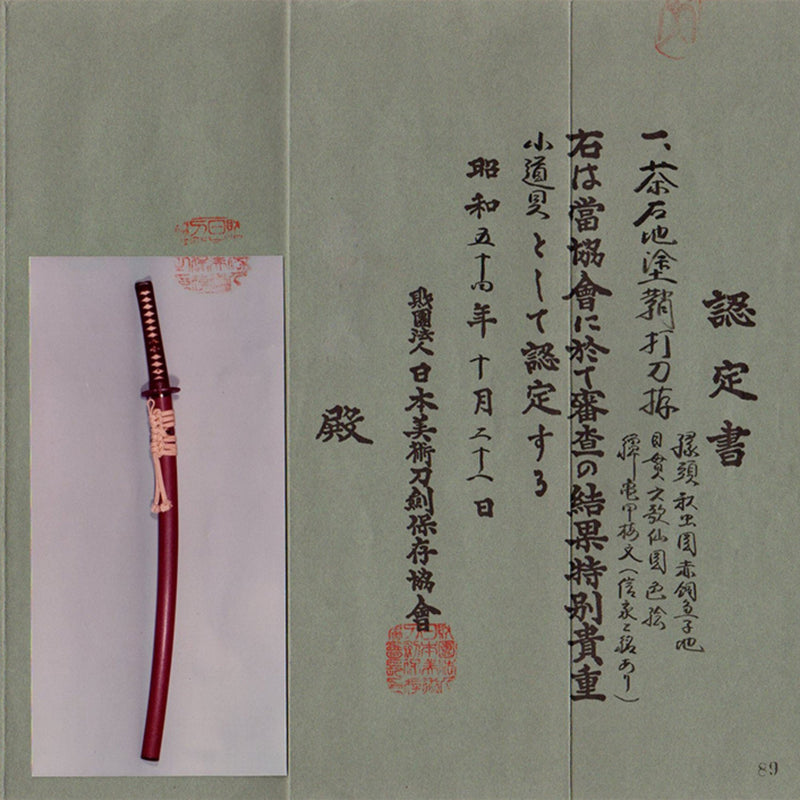 認定書
一、茶石地塗鞘打刀拵
縁頭 秋虫図赤銅魚子地
目貫 六歌仙図色絵
鐔 亀甲梅文（信家と銘あり）
右は當協會に於て審査の結果特別貴重
小道具として認定する
昭和五十四年十月二十八日
財團法人日本美術刀劍保存協會
殿
89